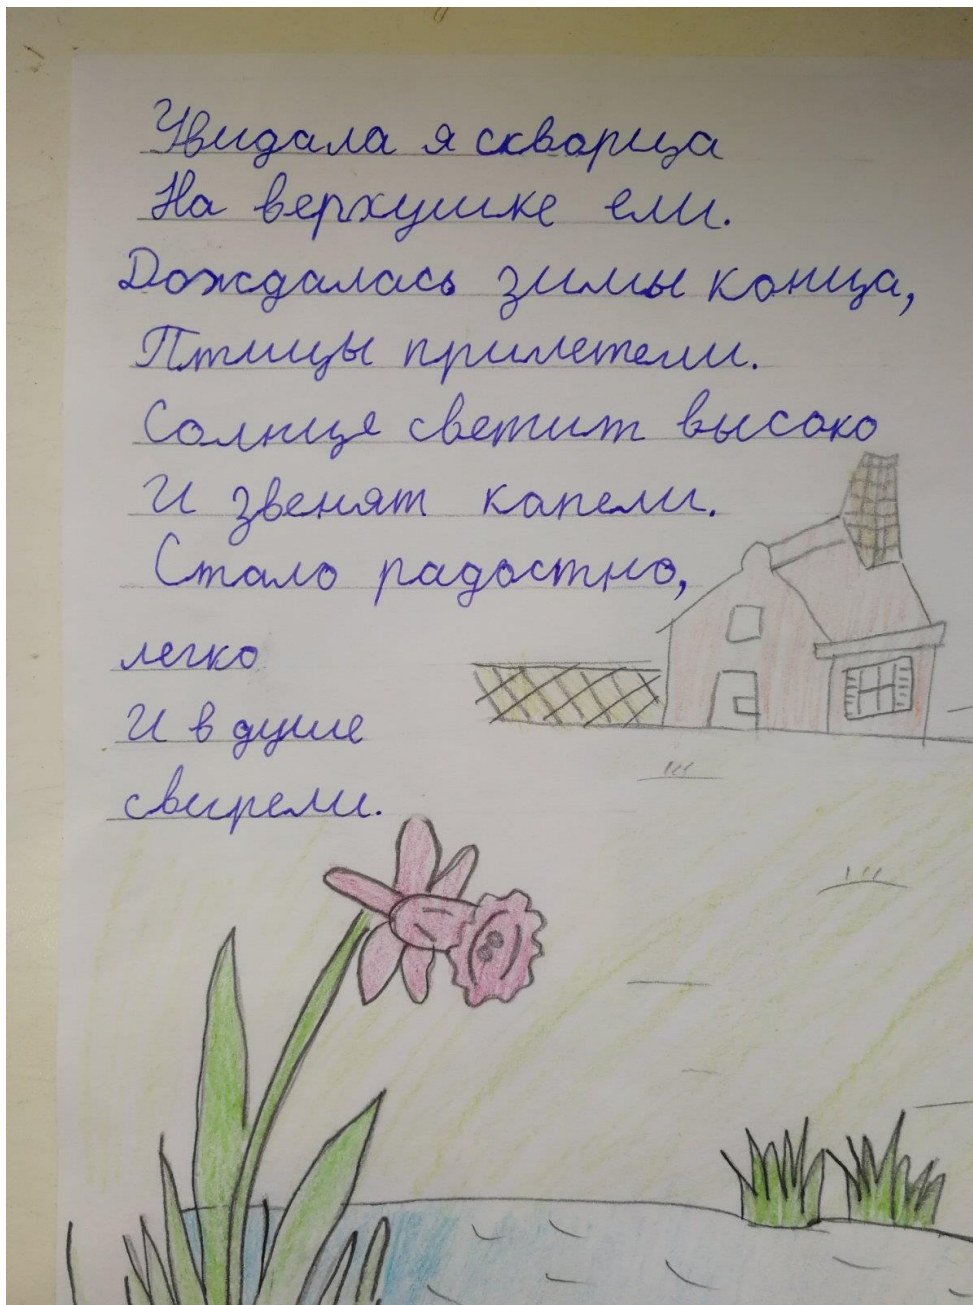 Увидала я скворца
На верхушке ели.
Дождалась зимы конца,
Птицы прилетели.
Солнце светит высоко
И звенят капели.
Стало радостно,
легко
И в душе
свирели.